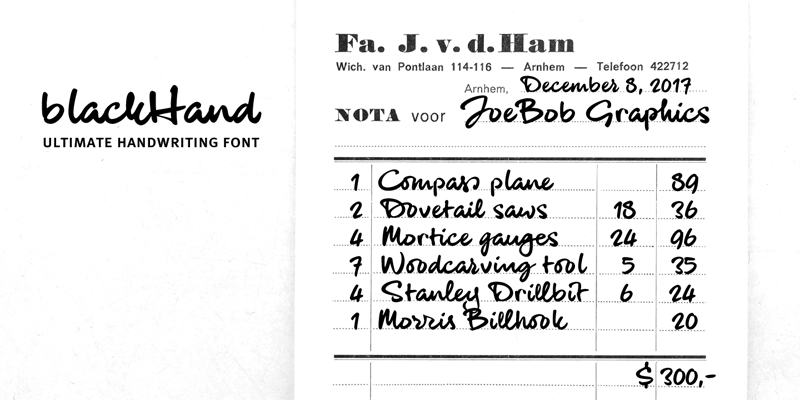 blackHand
ULTIMATE HANDWRITING FONT
Fa. J. v. d. Ham
Wich. van Pontlaan 114-116 — Arnhem — Telefoon 422712
Arnhem, December 8, 2017
NOTA voor JoeBob Graphics
1 Compass plane 89
2 Dovetail saws 18 36
4 Mortice gauges 24 96
7 Woodcarving tool 5 35
4 Stanley Drillbit 6 24
1 Morris Billhook 20
$ 300,-